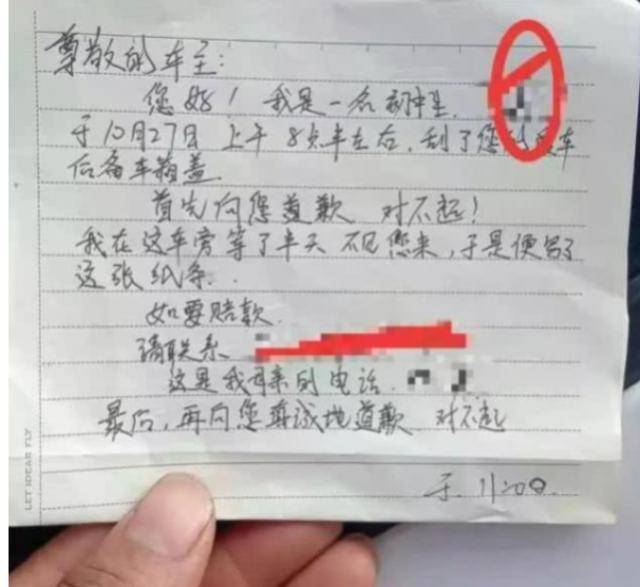 尊敬的车主：
您好！我是一名初中生
于10月27日上午8点半左右，刮了您的爱车
后备车箱盖
首先向您道歉 对不起！
我在这车旁等了半天 不见您来，于是便写了
这张纸条.
如要赔款
请联系
这是我母亲的电话.
最后，再向您真诚地道歉 对不起
于.11:00.
LET IDEAR FLY